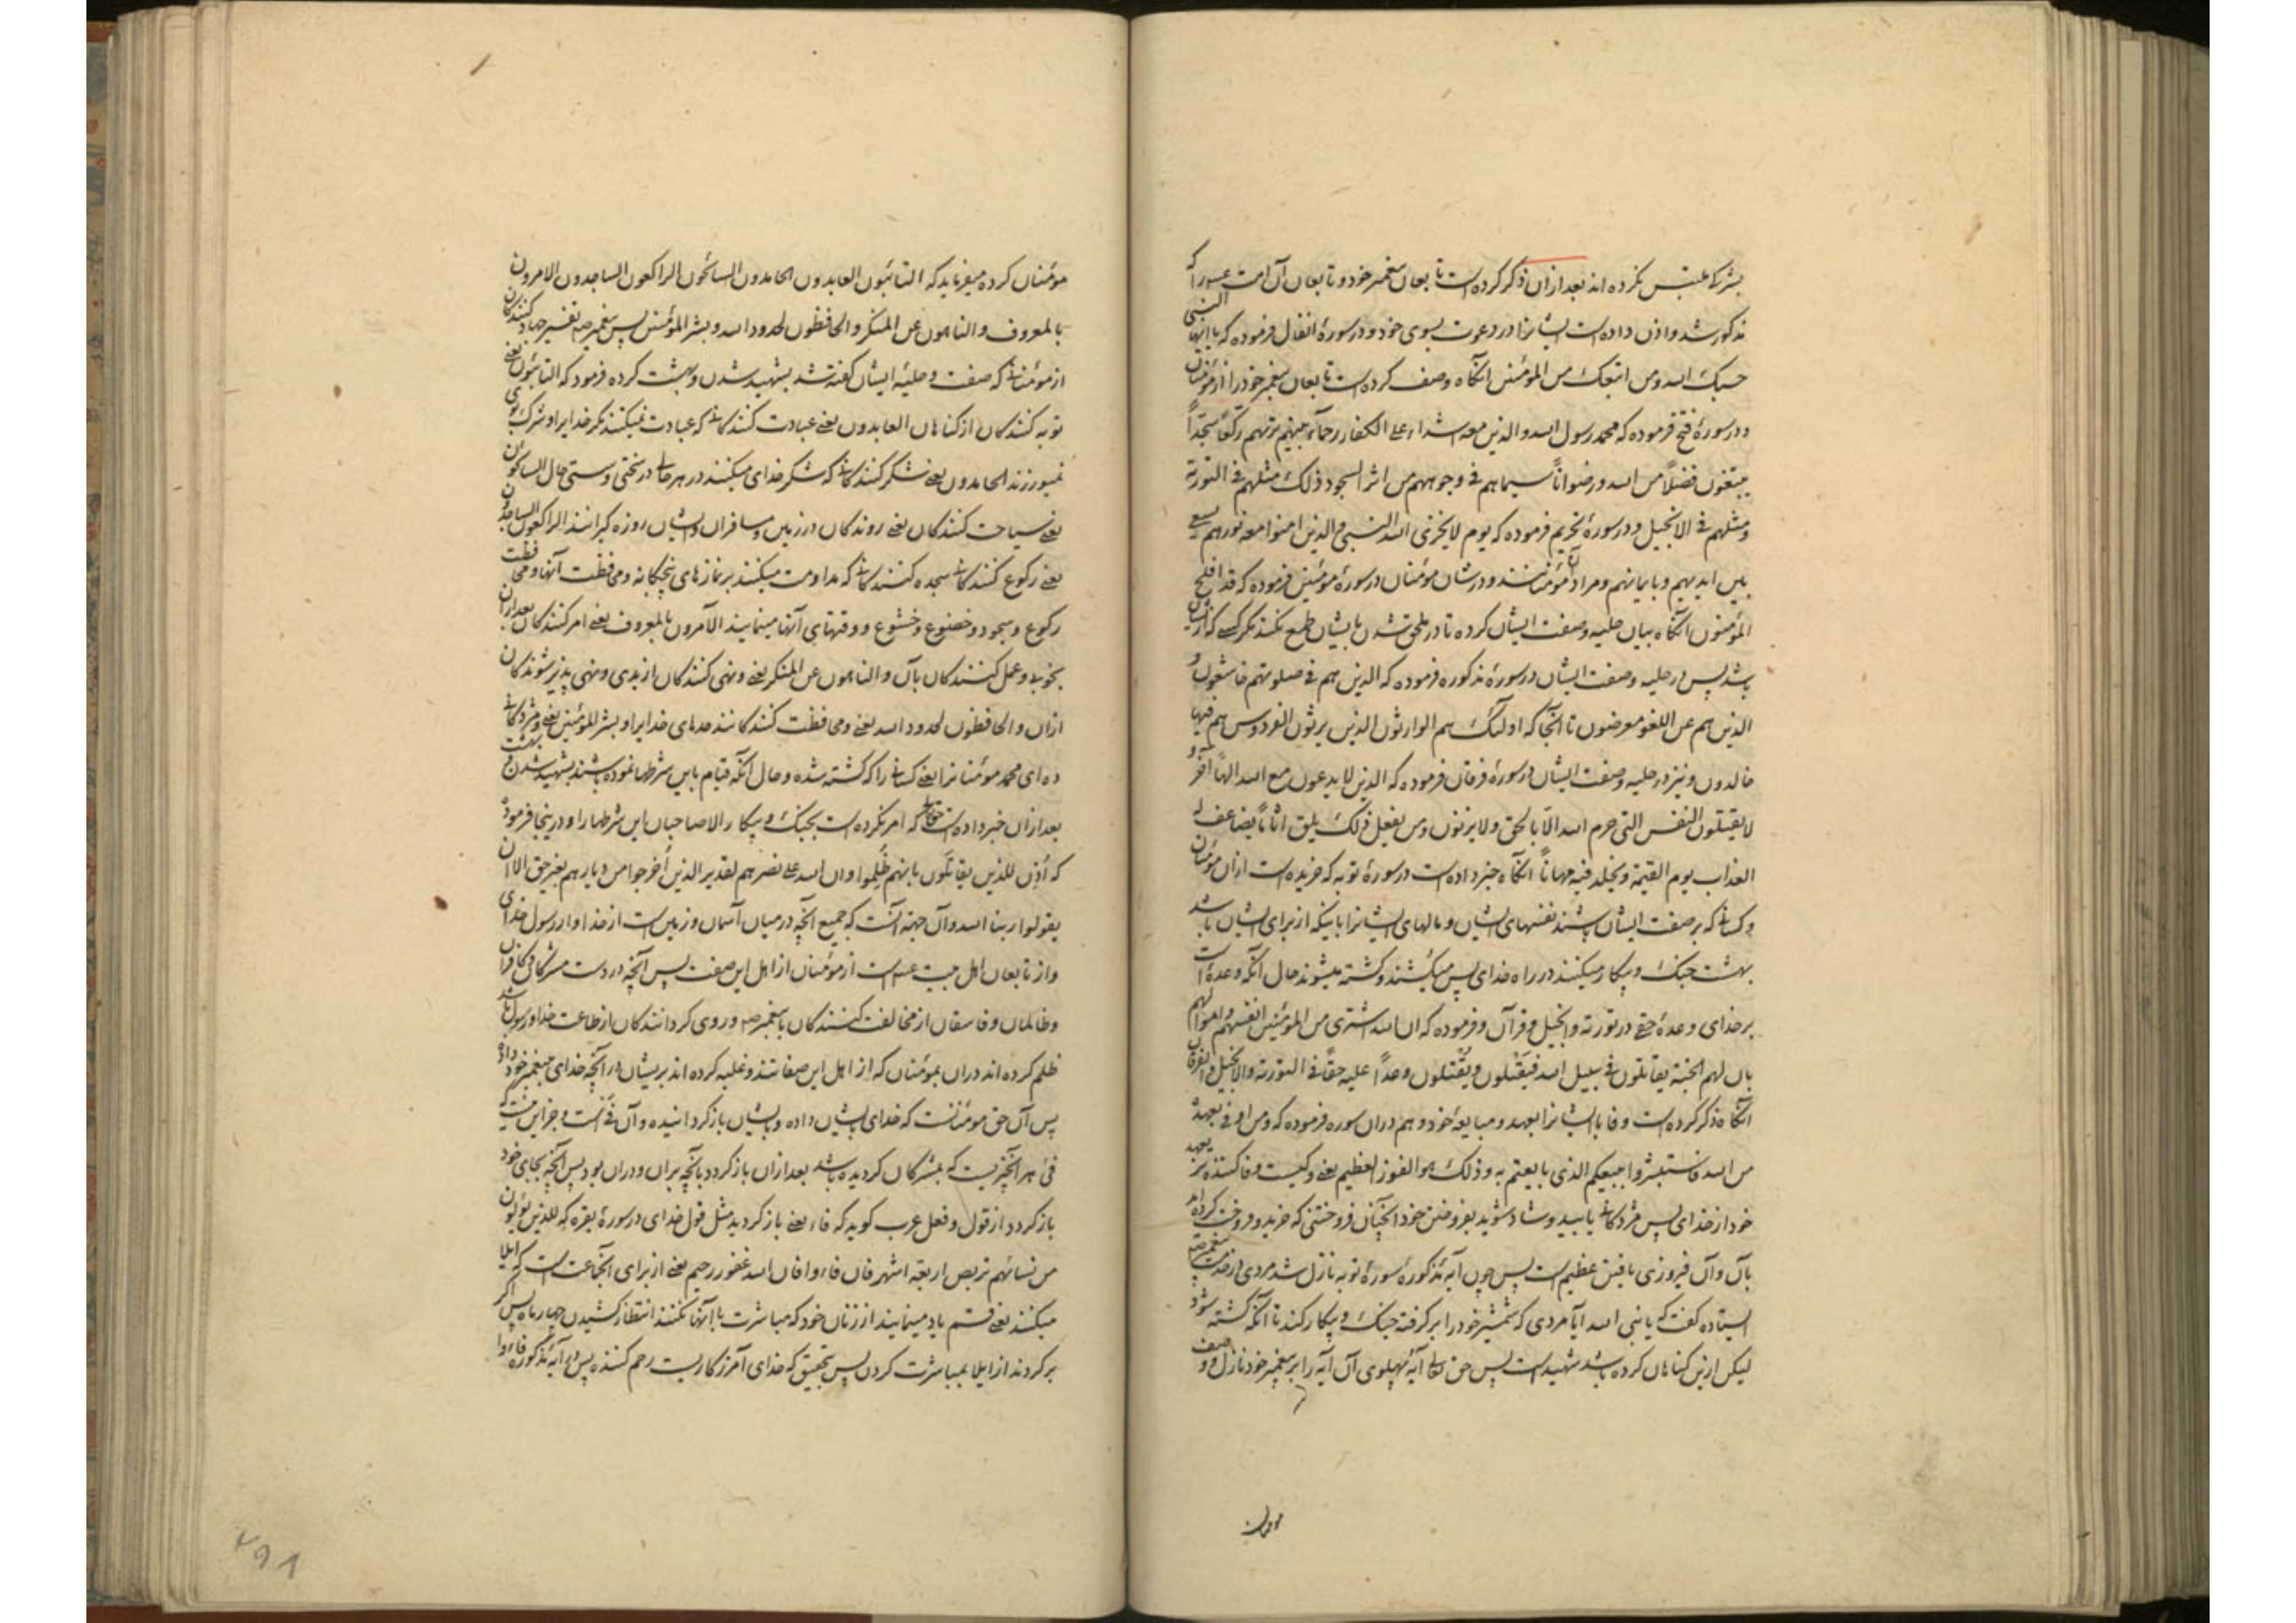 بشرک ملتبس نکرده اند بعد ازان ذکر کرده است تابعان پیغمبر خود و تابعان آن امت را که
مذکور شد و اذن داده است ایشانرا در دعوت بسوی خود و در سورهٔ انفال فرموده که یا ایها النبی
حسبک الله و من اتبعک من المؤمنین آنگاه وصف کرده است تابعان پیغمبر خود را از مؤمنان
و در سورهٔ فتح فرموده که محمد رسول الله والذین معه اشداء علی الکفار رحماء بینهم تریهم رکعا سجدا
یبتغون فضلا من الله و رضوانا سیماهم فی وجوههم من اثر السجود ذلک مثلهم فی التوریة
و مثلهم فی الانجیل و در سورهٔ تحریم فرموده که یوم لا یخزی الله النبی والذین امنوا معه نورهم یسعی
بین ایدیهم و بایمانهم و مراد ازان مؤمنانند و در شان مومنان در سورهٔ مؤمنین فرموده که قد افلح
المؤمنون آنگاه بیان حلیه و صفت ایشان کرده تا در ملحق شدن بایشان طمع نکند مگر کسی که ازیشان
باشد پس در حلیه و صفت ایشان در سورهٔ مذکوره فرموده که الذین هم فی صلوتهم خاشعون و
الذین هم عن اللغو معرضون تا آنجا که اولئک هم الوارثون الذین یرثون الفردوس هم فیها
خالدون و نیز در حلیه و صفت ایشان در سورهٔ فرقان فرموده که الذین لا یدعون مع الله الها آخر و
لا یقتلون النفس التی حرم الله الا بالحق و لا یزنون و من یفعل ذلک یلق اثاما یضاعف له
العذاب یوم القیمة و یخلد فیه مهانا آنگاه خبر داده است در سورهٔ توبه که خریده است ازان مؤمنان
و کسانی که بر صفت ایشان باشند نفسهای ایشان و مالهای ایشانرا باینکه از برای ایشان باشد
بهشت جنک و پیکار میکنند در راه خدای پس میکشند و کشته میشوند حال آنکه وعده است
بر خدای وعدهٔ حق در توریة و انجیل و قرآن و فرموده که ان الله اشتری من المؤمنین انفسهم و اموالهم
بان لهم الجنة یقاتلون فی سبیل الله فیقتلون و یقتلون وعدا علیه حقا فی التوریة والانجیل والقرآن
آنگاه ذکر کرده است وفا با ایشانرا بعهد و مبایعهٔ خود و هم دران سوره فرموده که و من اوفی بعهده
من الله فاستبشروا ببیعکم الذی بایعتم به و ذلک هو الفوز العظیم یعنی و کیست وفا کننده تر بعهد
خود از خدای پس مژدکانی یابید و شاد شوید بفروختن خود آنچنان فروختنی که خرید و فروخت کرده اید
بآن و آن فیروزی یافتن عظیم است پس چون آیهٔ مذکورهٔ سورهٔ توبه نازل شد مردی در خدمت پیغمبر
ایستاده کفت که یا نبی الله آیا مردی که شمشیر خود را بر کرفته جنک و پیکار کند تا آنکه کشته شود
لیکن ازین کناهان کرده باشد شهید است پس حق تعالی آیهٔ پهلوی آن آیه را بر پیغمبر خود نازل و وصف
مومنان
مؤمنان کرده میفرماید که التائبون العابدون الحامدون السائحون الراکعون الساجدون الامرون
بالمعروف والناهون عن المنکر والحافظون لحدود الله و بشر المؤمنین پس پیغمبر تفسیر جهاد کنندکان
از مؤمنانی که صفت و حلیهٔ ایشان کفته شد بشهید شدن و بهشت کرده فرمود که التائبون یعنی
توبه کنندکان از کناهان العابدون یعنی عبادت کنندکانی که عبادت نمیکنند مکر خدایرا و شرک بوی
نمیورزند الحامدون یعنی شکر کنندکانی که شکر خدای میکنند در هر حالی در سختی و سستی حال السائحون
یعنی سیاحت کنندکان یعنی روندکان در زمین و مسافران و ایشان روزه کیرانند الراکعون الساجدون
یعنی رکوع کنندکانی سجده کنندکانی که مداومت میکنند بر نمازهای پنجکانه و محافظت آنها و محافظت
رکوع و سجود و خضوع و خشوع و وقتهای آنها مینمایند الآمرون بالمعروف یعنی امر کنندکان بعد ازان
بخوبی و عمل کنندکان بآن والناهون عن المنکر یعنی و نهی کنندکان از بدی و نهی پذیر شوندکان
ازان والحافظون لحدود الله یعنی و محافظت کنندکانند حدهای خدایرا و بشر المؤمنین یعنی و مژدکانی
ده ای محمد مومنانرا یعنی کسانی را که کشته شده و حال آنکه قیام باین شرطها نموده باشند بشهید شدن و بهشت
بعد ازان خبر داده است حقتعالی که امر نکرده است بجنک و پیکار الا صاحبان این شرطها را و درینجا فرموده
که اذن للذین یقاتلون بانهم ظلموا و ان الله علی نصرهم لقدیر الذین اخرجوا من دیارهم بغیر حق الا ان
یقولوا ربنا الله و آن جهة آنست که جمیع آنچه در میان آسمان و زمین است از خدا و از رسول خدای
و از تابعان اهل بیت است از مؤمنان از اهل این صفت پس آنچه در دست مشرکان و کافران
و ظالمان و فاسقان از مخالفت کنندکان با پیغمبر و روی کردانندکان از طاعت خدا و رسول باشد
ظلم کرده اند دران بمومنان که از اهل این صفاتند و غلبه کرده اند بریشان در آنچه خدای پیغمبر خود داده
پس آن حق مومنانست که خدای بایشان داده و بایشان باز کردانیده و آن فیء است و جز این نیست که
فیء هر آنچیزیست که بمشرکان کردیده باشد بعد ازان باز کردد بآنچه بران و دران بود پس آنچه بجای خود
باز کردد از قول و فعل عرب کوید که فاء یعنی باز کردید مثل قول خدای در سورهٔ بقره که للذین یؤلون
من نسائهم تربص اربعة اشهر فان فاءوا فان الله غفور رحیم یعنی از برای آنجماعت است که ایلا
میکنند یعنی قسم یاد مینمایند از زنان خود که مباشرت با آنها نکنند انتظار کشیدن چهار ماه پس اکر
بر کردند از ایلا بمباشرت کردن پس بتحقیق که خدای آمرزکاریست رحم کننده پس در آیهٔ مذکوره فاءوا